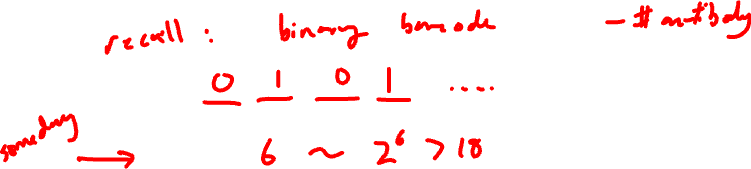 recall : binary barcode - # antibody
0 1 0 1 ....
someday → 6 ~ 2⁶ > 18